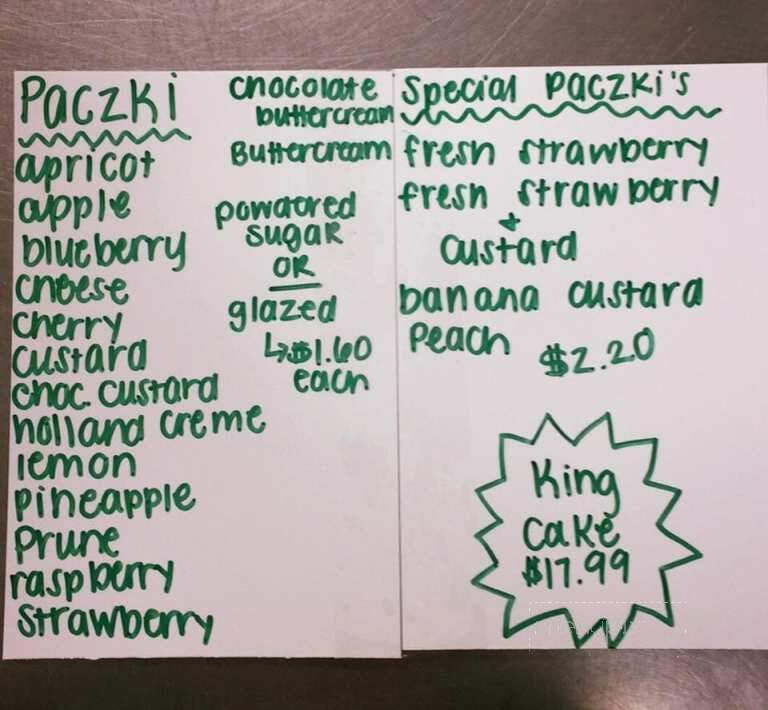 Paczki
apricot
apple
blueberry
cheese
cherry
custard
choc. custard
holland creme
lemon
pineapple
prune
raspberry
strawberry
chocolate
buttercream
Buttercream
powdered
sugar
OR
glazed
↳$1.60
each
Special Paczki's
fresh strawberry
fresh strawberry
+
custard
banana custard
Peach $2.20
King
cake
$17.99